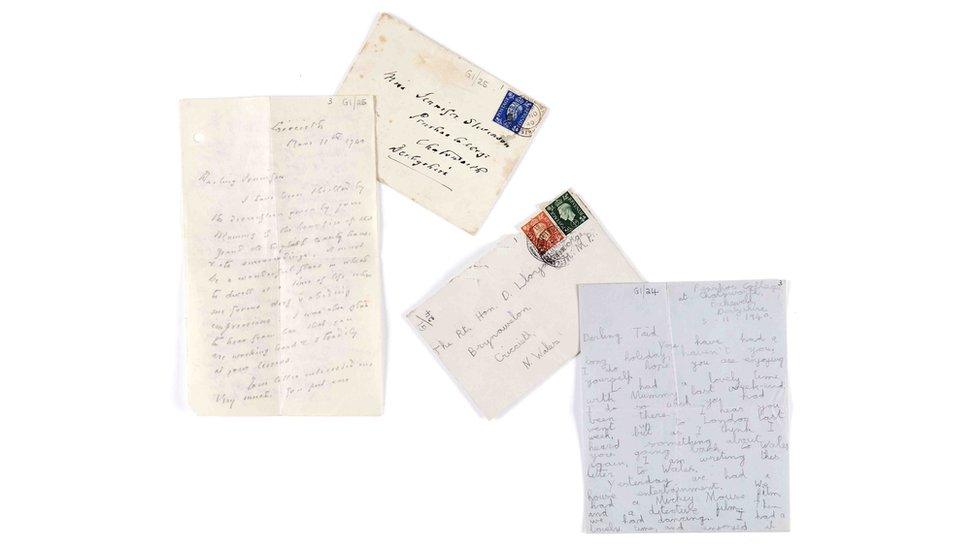 3 G1/25
Criccieth
1940
Darling Jennifer
I have been thrilled by
the description given by your
Mummy of the
grand old English county house
surroundings. It must
be a wonderful place in which
to dwell at a time of life when
one forms deep & abiding
impressions. I was also glad
to hear from her that you
are working hard & steadily
at your lessons.
Your letter interested me
very much. You put one
G1/25 1
Miss Jennifer Stevenson
Penrhos College
Chatsworth
Derbyshire
1
G1/24
The Rt. Hon. D. Lloyd George
O.M. M.P.
Brynawelon
Criccieth
N. Wales
G1/24 3
Penrhos College
at Chatsworth,
Bakewell
Derbyshire
3 - 11 - 1940.
Darling Taid
You have had a
long holiday, haven't you,
I do hope you are enjoying
yourself. I had a lovely time
with Mummy last weekend.
I do wish you had
been there. I hear you
went to London last
week, but as I think I
heard something about
you going back to Wales
again, I am writing this
letter to Wales.
Yesterday we had a
house entertainment. We
had a Mickey Mouse film
and a detective film. Then
we had dancing. I had a
lovely time, and